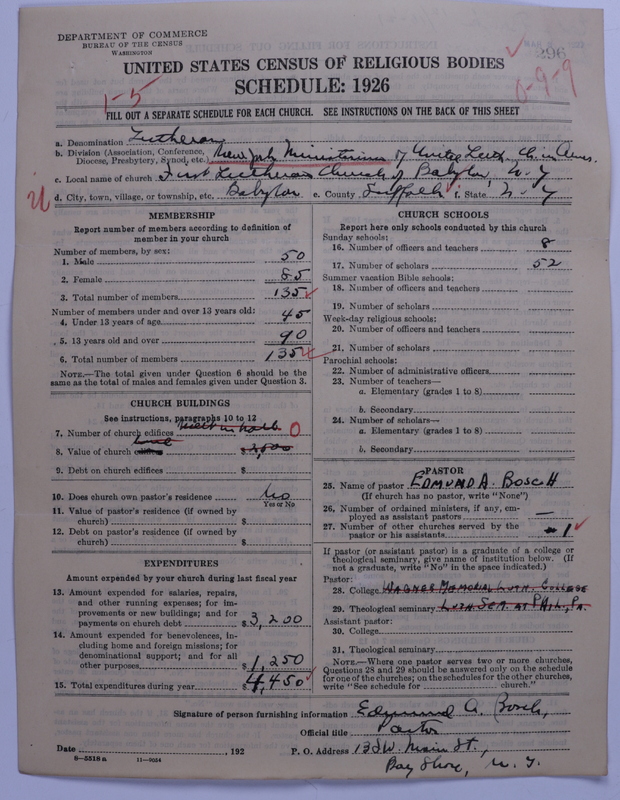 DEPARTMENT OF COMMERCE
BUREAU OF THE CENSUS
WASHINGTON
296
UNITED STATES CENSUS OF RELIGIOUS BODIES
SCHEDULE: 1926
1-5
0-9-9
FILL OUT A SEPARATE SCHEDULE FOR EACH CHURCH. SEE INSTRUCTIONS ON THE BACK OF THIS SHEET
a. Denomination Lutheran
b. Division (Association, Conference, Diocese, Presbytery, Synod, etc.) New York Ministerium of United Luth. Ch. in Amer.
c. Local name of church First Lutheran Church of Babylon, N.Y
d. City, town, village, or township, etc. Babylon e. County Suffolk f. State N.Y
MEMBERSHIP
Report number of members according to definition of
member in your church
Number of members, by sex:
1. Male 50
2. Female 85
3. Total number of members 135
Number of members under and over 13 years old:
4. Under 13 years of age 45
5. 13 years old and over 90
6. Total number of members 135
NOTE.—The total given under Question 6 should be the
same as the total of males and females given under Question 3.
CHURCH BUILDINGS
See instructions, paragraphs 10 to 12
7. Number of church edifices Meet in hall 0
8. Value of church edifices $ 2,500
9. Debt on church edifices $
10. Does church own pastor's residence No
Yes or No
11. Value of pastor's residence (if owned by
church) $
12. Debt on pastor's residence (if owned by
church) $
EXPENDITURES
Amount expended by your church during last fiscal year
13. Amount expended for salaries, repairs,
and other running expenses; for im-
provements or new buildings; and for
payments on church debt $ 3,200
14. Amount expended for benevolences, in-
cluding home and foreign missions; for
denominational support; and for all
other purposes $ 1,250
15. Total expenditures during year $ 4,450
CHURCH SCHOOLS
Report here only schools conducted by this church
Sunday schools:
16. Number of officers and teachers 8
17. Number of scholars 52
Summer vacation Bible schools:
18. Number of officers and teachers
19. Number of scholars
Week-day religious schools:
20. Number of officers and teachers
21. Number of scholars
Parochial schools:
22. Number of administrative officers
23. Number of teachers—
a. Elementary (grades 1 to 8)
b. Secondary
24. Number of scholars—
a. Elementary (grades 1 to 8)
b. Secondary
PASTOR
25. Name of pastor EDMUND A. BOSCH
(If church has no pastor, write "None")
26. Number of ordained ministers, if any, em-
ployed as assistant pastors —
27. Number of other churches served by the
pastor or his assistants 1
If pastor (or assistant pastor) is a graduate of a college or
theological seminary, give name of institution below. (If
not a graduate, write "No" in the space indicated.)
Pastor:
28. College WAGNER MEMORIAL LUTH. COLLEGE
29. Theological seminary LUTH SEM. AT PHIL., PA.
Assistant pastor:
30. College
31. Theological seminary
NOTE.—Where one pastor serves two or more churches,
Questions 28 and 29 should be answered only on the schedule
for one of the churches; on the schedules for the other churches,
write "See schedule for church."
Signature of person furnishing information Edmund A. Bosch,
Official title Pastor
Date , 192 P. O. Address 13 S W. Main St.,
Bay Shore, N.Y.
8-5518a 11-9054